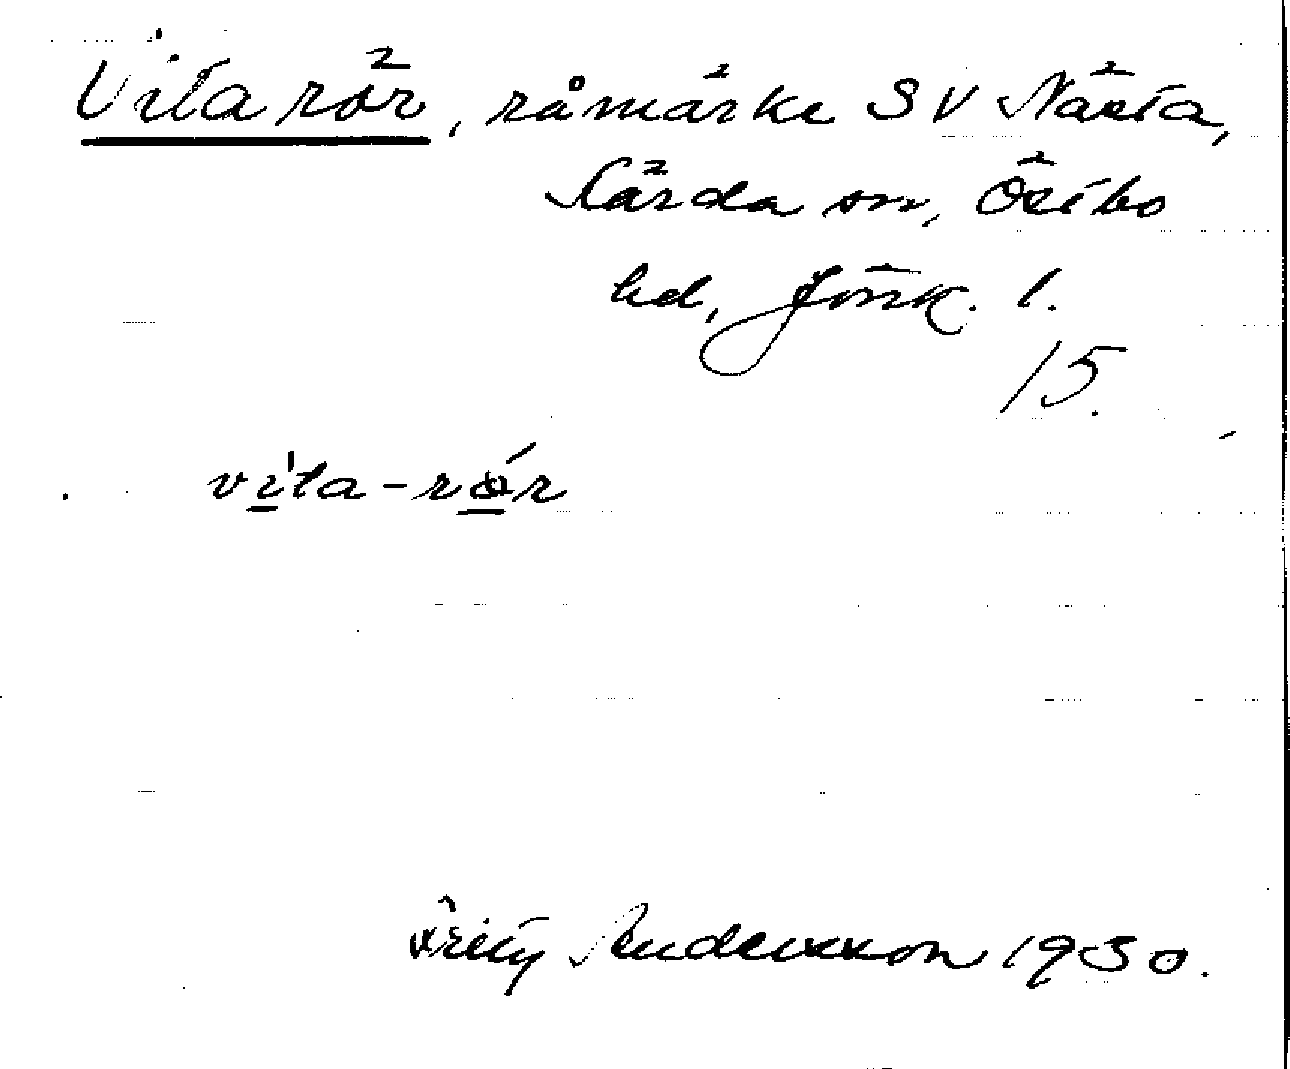 Vita rör, råmärke SV Nästa,
Kärda sn, Östbo
hd, Jönk. l.
15.
vita-rör
Fritz Andersson 1930.